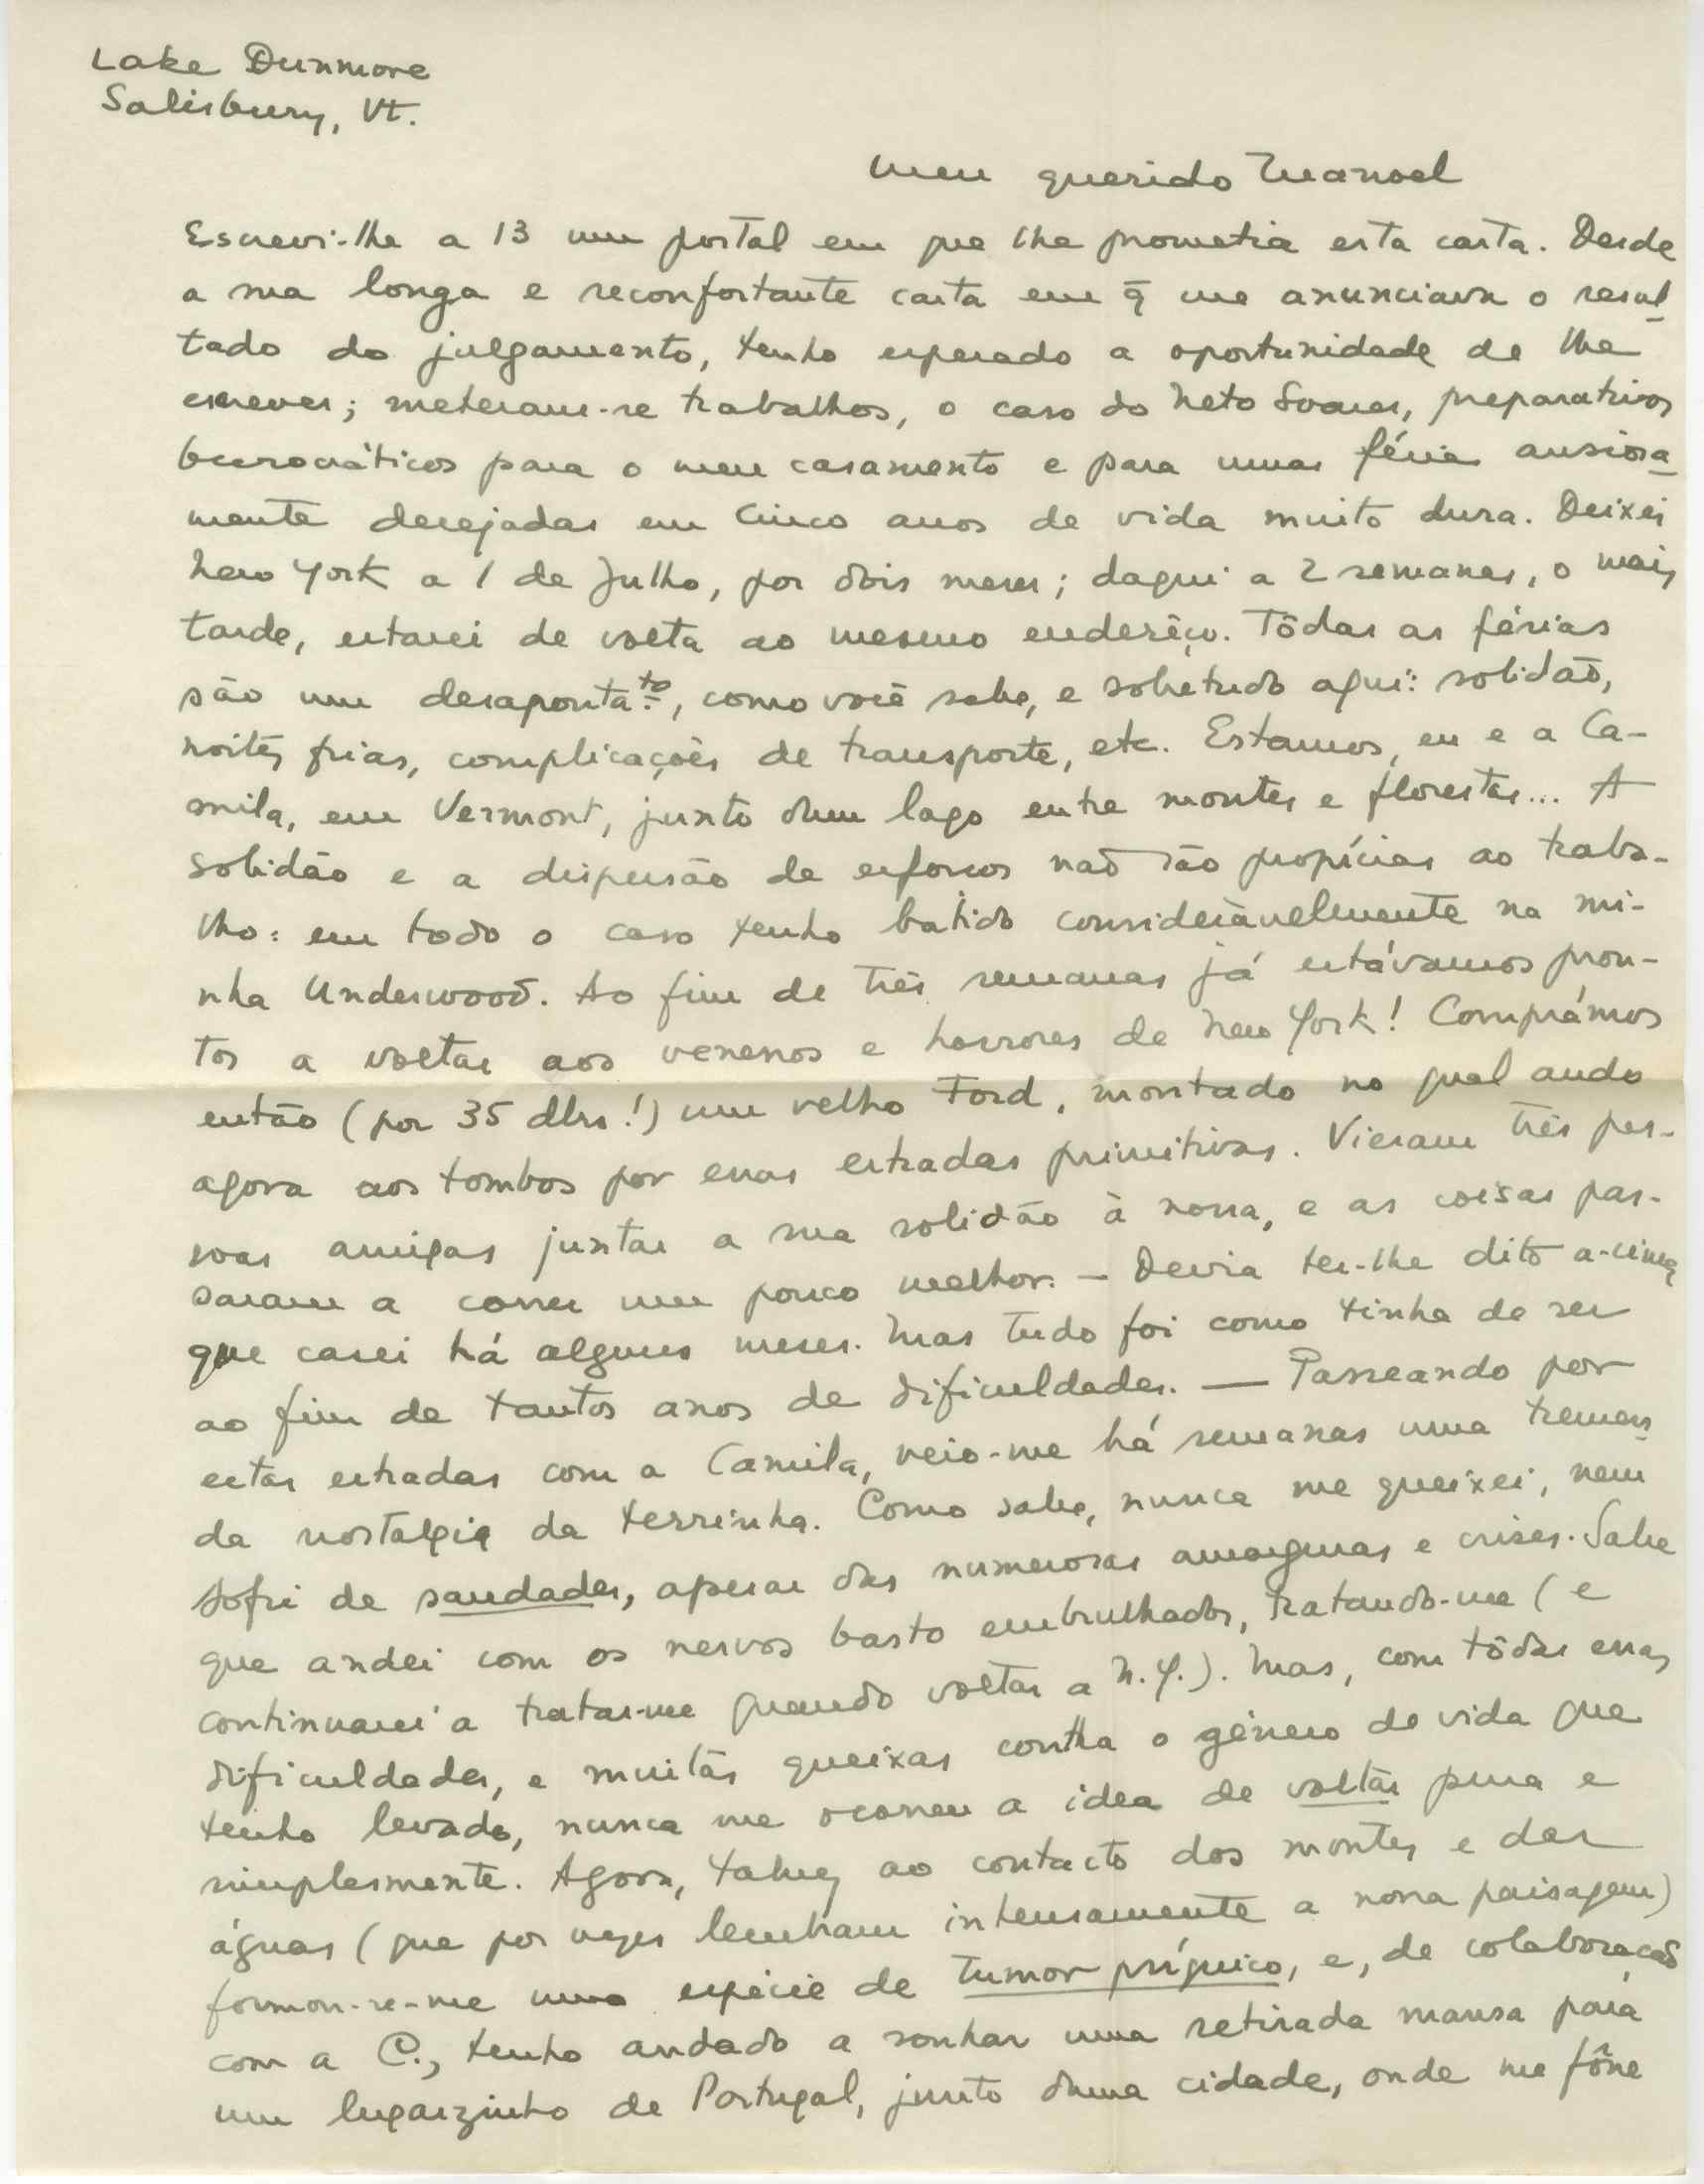 Lake Dunmore
Salisbury, Vt.
Meu querido Manoel
Escrevi-lhe a 13 um postal em que lhe prometia esta carta. Desde
a sua longa e reconfortante carta em q̃ me anunciava o resul-
tado do julgamento, tenho esperado a oportunidade de lhe
escrever; meteram-se trabalhos, o caso do Neto Soares, preparativos
burocráticos para o meu casamento e para umas férias ansiosa-
mente desejadas em cinco anos de vida muito dura. Deixei
New York a 1 de Julho, por dois meses; daqui a 2 semanas, o mais
tarde, estarei de volta ao mesmo enderêço. Tôdas as férias
são um desaponta.to, como você sabe, e sobretudo aqui: solidão,
noites frias, complicações de transporte, etc. Estamos, eu e a Ca-
mila, em Vermont, junto dum lago entre montes e florestas... A
solidão e a dispersão de esforços não são propícias ao traba-
lho: em todo o caso tenho batido consideràvelmente na mi-
nha Underwood. Ao fim de três semanas já estávamos pron-
tos a voltar aos venenos e horrores de New York! Comprámos
então (por 35 dlrs!) um velho Ford, montado no qual ando
agora aos tombos por essas estradas primitivas. Vieram três pes-
soas amigas juntar a sua solidão à nossa, e as coisas pas-
saram a correr um pouco melhor. — Devia ter-lhe dito a-cima
que casei há alguns meses. Mas tudo foi como tinha de ser
ao fim de tantos anos de dificuldades. — Passeando por
estas estradas com a Camila, veio-me há semanas uma tremen-
da nostalgia da terrinha. Como sabe, nunca me queixei, nem
sofri de saudades, apesar das numerosas amarguras e crises. Sabe
que andei com os nervos basto embrulhados, tratando-me (e
continuarei a tratar-me quando voltar a N.Y.). Mas, com tôdas essas
dificuldades, e muitas queixas contra o género de vida que
tenho levado, nunca me ocorreu a idea de voltar pura e
simplesmente. Agora, talvez ao contacto dos montes e das
águas (que por vezes lembram intensamente a nossa paisagem)
formou-se-me uma espécie de tumor psíquico, e, de colaboração
com a C., tenho andado a sonhar uma retirada mansa para
um lugarzinho de Portugal, junto duma cidade, onde me fôsse